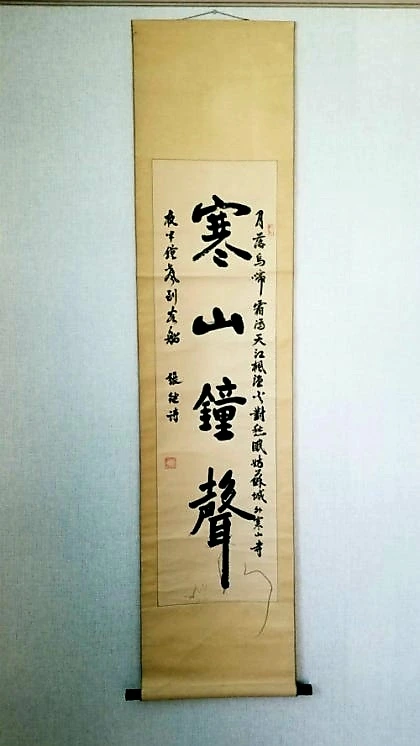 月落烏啼霜滿天江楓漁火對愁眠姑蘇城外寒山寺
寒山鐘聲
夜半鐘聲到客船
張継詩